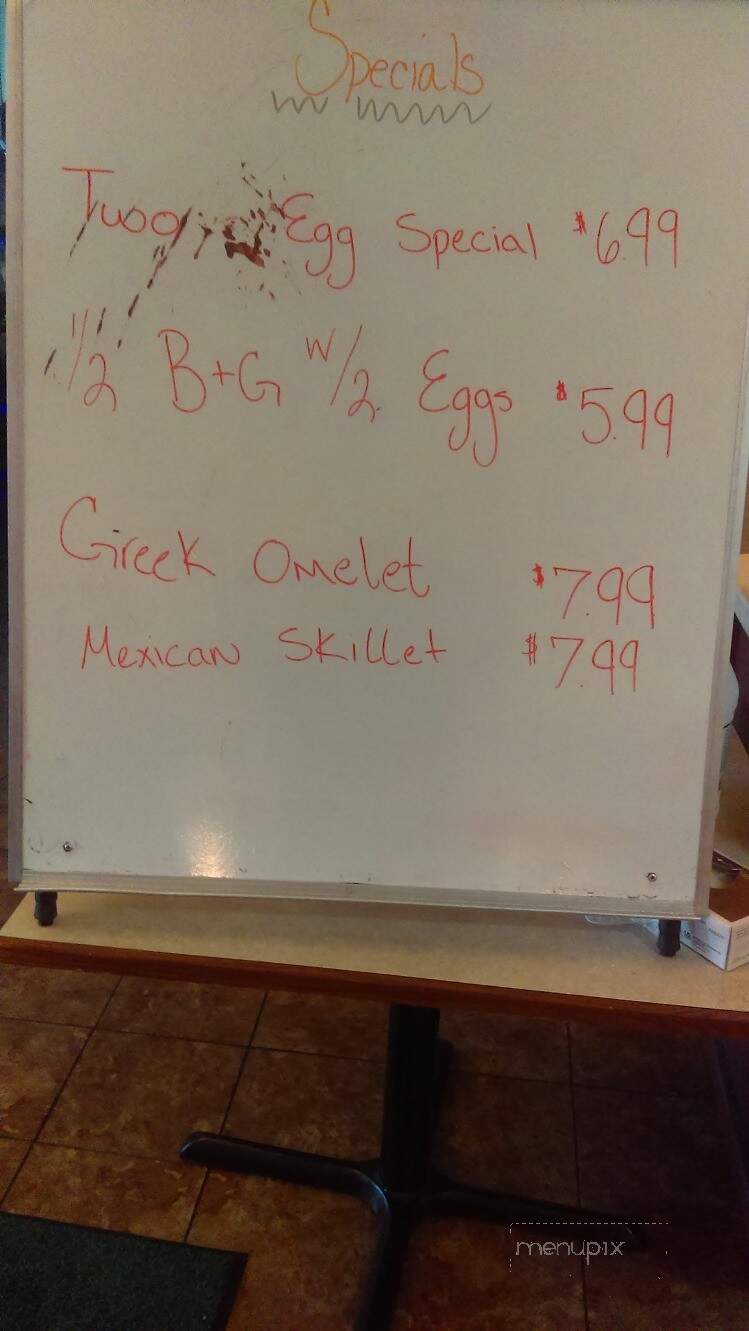 Specials
Two Egg Special $6.99
1/2 B+G w/2 Eggs $5.99
Greek Omelet $7.99
Mexican Skillet $7.99
menupix